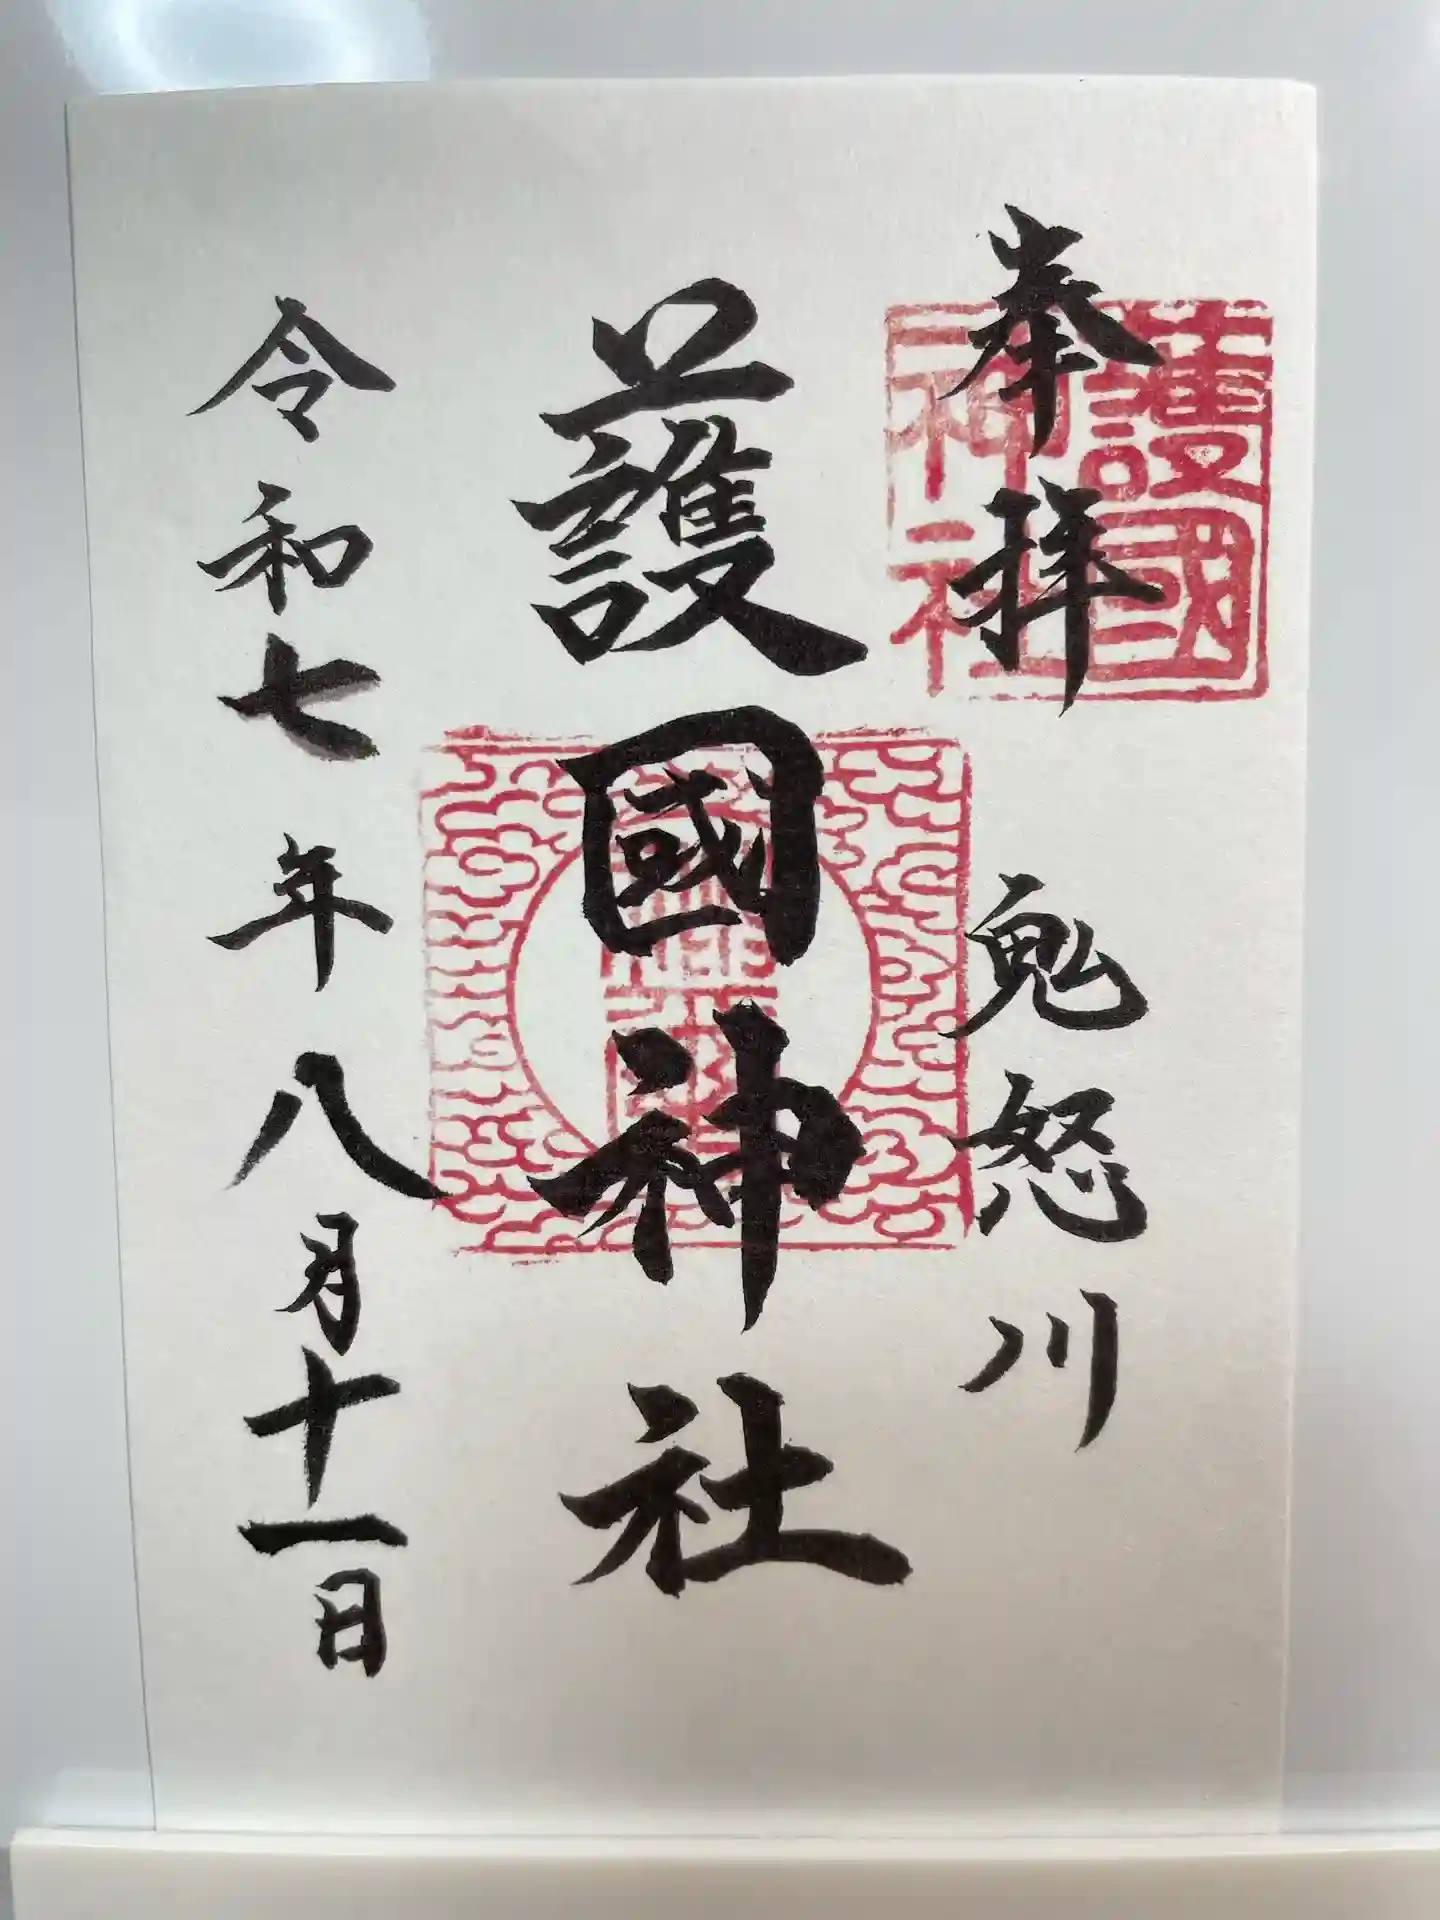 奉拝
鬼怒川
護國神社
護國神社
令和七年八月十一日